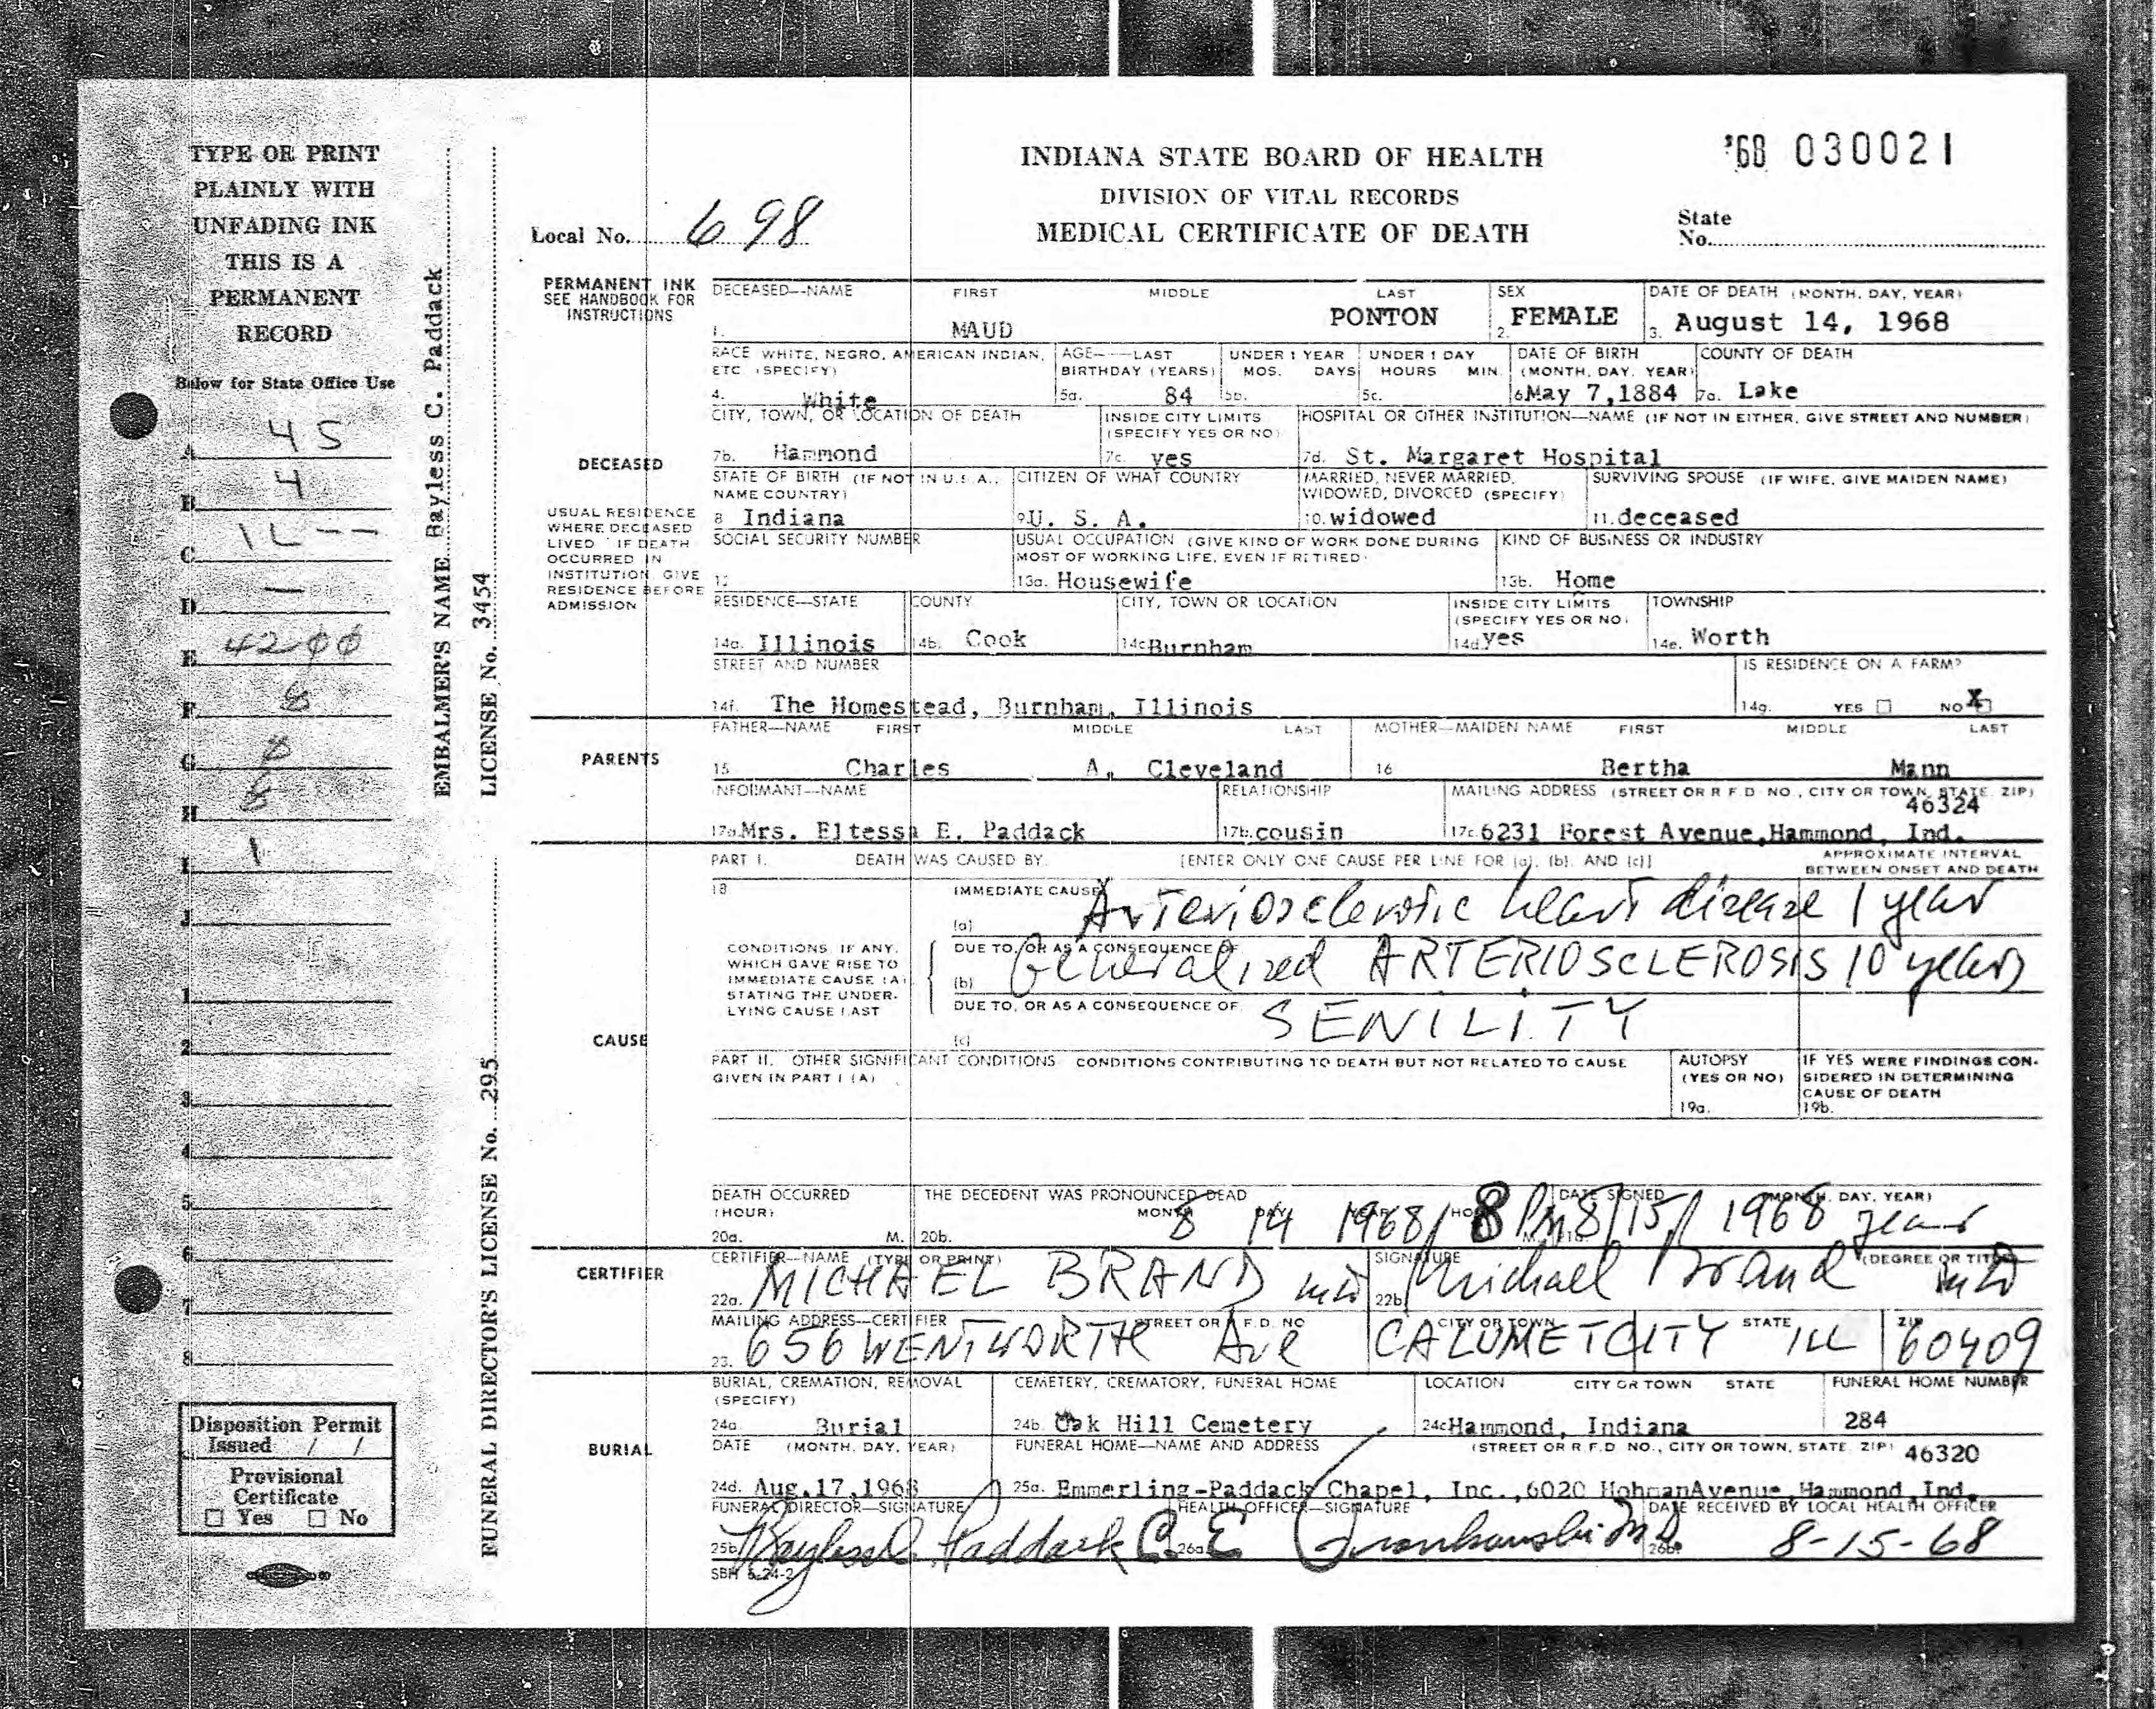 TYPE OR PRINT
PLAINLY WITH
UNFADING INK
THIS IS A
PERMANENT
RECORD
Below for State Office Use
A 45
B 4
C 1L --
D —
E 42
F
G
H
I 1
J
1
2
3
4
5
6
7
8
Disposition Permit
Issued / /
Provisional
Certificate
☐ Yes ☐ No
EMBALMER'S NAME Bayless C. Paddack
LICENSE No. 3454
FUNERAL DIRECTOR'S LICENSE No. 295
INDIANA STATE BOARD OF HEALTH
'68 030021
DIVISION OF VITAL RECORDS
Local No. 698
MEDICAL CERTIFICATE OF DEATH
State
No.
PERMANENT INK
SEE HANDBOOK FOR
INSTRUCTIONS
DECEASED—NAME FIRST MIDDLE LAST SEX DATE OF DEATH (MONTH, DAY, YEAR)
1. MAUD PONTON 2. FEMALE 3. August 14, 1968
RACE WHITE, NEGRO, AMERICAN INDIAN, AGE—LAST UNDER 1 YEAR UNDER 1 DAY DATE OF BIRTH COUNTY OF DEATH
ETC (SPECIFY) BIRTHDAY (YEARS) MOS. DAYS HOURS MIN. (MONTH, DAY, YEAR)
4. White 5a. 84 5b. 5c. 6 May 7,1884 7a. Lake
CITY, TOWN, OR LOCATION OF DEATH INSIDE CITY LIMITS HOSPITAL OR OTHER INSTITUTION—NAME (IF NOT IN EITHER, GIVE STREET AND NUMBER)
(SPECIFY YES OR NO)
7b. Hammond 7c. yes 7d. St. Margaret Hospital
DECEASED
STATE OF BIRTH (IF NOT IN U.S.A., CITIZEN OF WHAT COUNTRY MARRIED, NEVER MARRIED, SURVIVING SPOUSE (IF WIFE, GIVE MAIDEN NAME)
NAME COUNTRY) WIDOWED, DIVORCED (SPECIFY)
8 Indiana 9 U. S. A. 10. widowed 11. deceased
USUAL RESIDENCE
WHERE DECEASED
LIVED IF DEATH
OCCURRED IN
INSTITUTION, GIVE
RESIDENCE BEFORE
ADMISSION
SOCIAL SECURITY NUMBER USUAL OCCUPATION (GIVE KIND OF WORK DONE DURING KIND OF BUSINESS OR INDUSTRY
MOST OF WORKING LIFE, EVEN IF RETIRED)
12 13a. Housewife 13b. Home
RESIDENCE—STATE COUNTY CITY, TOWN OR LOCATION INSIDE CITY LIMITS TOWNSHIP
(SPECIFY YES OR NO)
14a. Illinois 14b. Cook 14c Burnham 14d. yes 14e. Worth
STREET AND NUMBER IS RESIDENCE ON A FARM?
14f. The Homestead, Burnham, Illinois 14g. YES ☐ NO X
PARENTS
FATHER—NAME FIRST MIDDLE LAST MOTHER—MAIDEN NAME FIRST MIDDLE LAST
15 Charles A. Cleveland 16 Bertha Mann
INFORMANT—NAME RELATIONSHIP MAILING ADDRESS (STREET OR R F.D NO., CITY OR TOWN, STATE, ZIP)
46324
17a. Mrs. Eltessa E. Paddack 17b. cousin 17c. 6231 Forest Avenue, Hammond, Ind.
PART I. DEATH WAS CAUSED BY: [ENTER ONLY ONE CAUSE PER LINE FOR (a), (b), AND (c)] APPROXIMATE INTERVAL
BETWEEN ONSET AND DEATH
18 IMMEDIATE CAUSE
(a) Arteriosclerotic heart disease 1 year
CONDITIONS, IF ANY,
WHICH GAVE RISE TO
IMMEDIATE CAUSE (A)
STATING THE UNDER-
LYING CAUSE LAST
DUE TO, OR AS A CONSEQUENCE OF
(b) Generalized ARTERIOSCLEROSIS 10 years
DUE TO, OR AS A CONSEQUENCE OF
(c) SENILITY
CAUSE
PART II. OTHER SIGNIFICANT CONDITIONS CONDITIONS CONTRIBUTING TO DEATH BUT NOT RELATED TO CAUSE AUTOPSY IF YES WERE FINDINGS CON-
GIVEN IN PART I (A) (YES OR NO) SIDERED IN DETERMINING
CAUSE OF DEATH
19a. 19b.
DEATH OCCURRED THE DECEDENT WAS PRONOUNCED DEAD DATE SIGNED (MONTH, DAY, YEAR)
(HOUR) MONTH DAY YEAR HOUR
20a. M. 20b. 8 14 1968 / 8 PM 8/15/1968 years
CERTIFIER
CERTIFIER—NAME (TYPE OR PRINT) SIGNATURE (DEGREE OR TITLE)
22a. MICHAEL BRAND MD 22b Michael Brand MD
MAILING ADDRESS—CERTIFIER STREET OR R.F.D. NO CITY OR TOWN STATE ZIP
23. 656 WENTWORTH Ave CALUMET CITY ILL 60409
BURIAL
BURIAL, CREMATION, REMOVAL CEMETERY, CREMATORY, FUNERAL HOME LOCATION CITY OR TOWN STATE FUNERAL HOME NUMBER
(SPECIFY)
24a. Burial 24b. Oak Hill Cemetery 24c Hammond, Indiana 284
DATE (MONTH, DAY, YEAR) FUNERAL HOME—NAME AND ADDRESS (STREET OR R.F.D NO., CITY OR TOWN, STATE, ZIP) 46320
24d. Aug.17,1968 25a. Emmerling-Paddack Chapel, Inc.,6020 HohmanAvenue,Hammond,Ind.
FUNERAL DIRECTOR—SIGNATURE HEALTH OFFICER—SIGNATURE DATE RECEIVED BY LOCAL HEALTH OFFICER
25b Bayless C. Paddack C. E. 26a M.D. 26b. 8-15-68
SBH 6-24-2